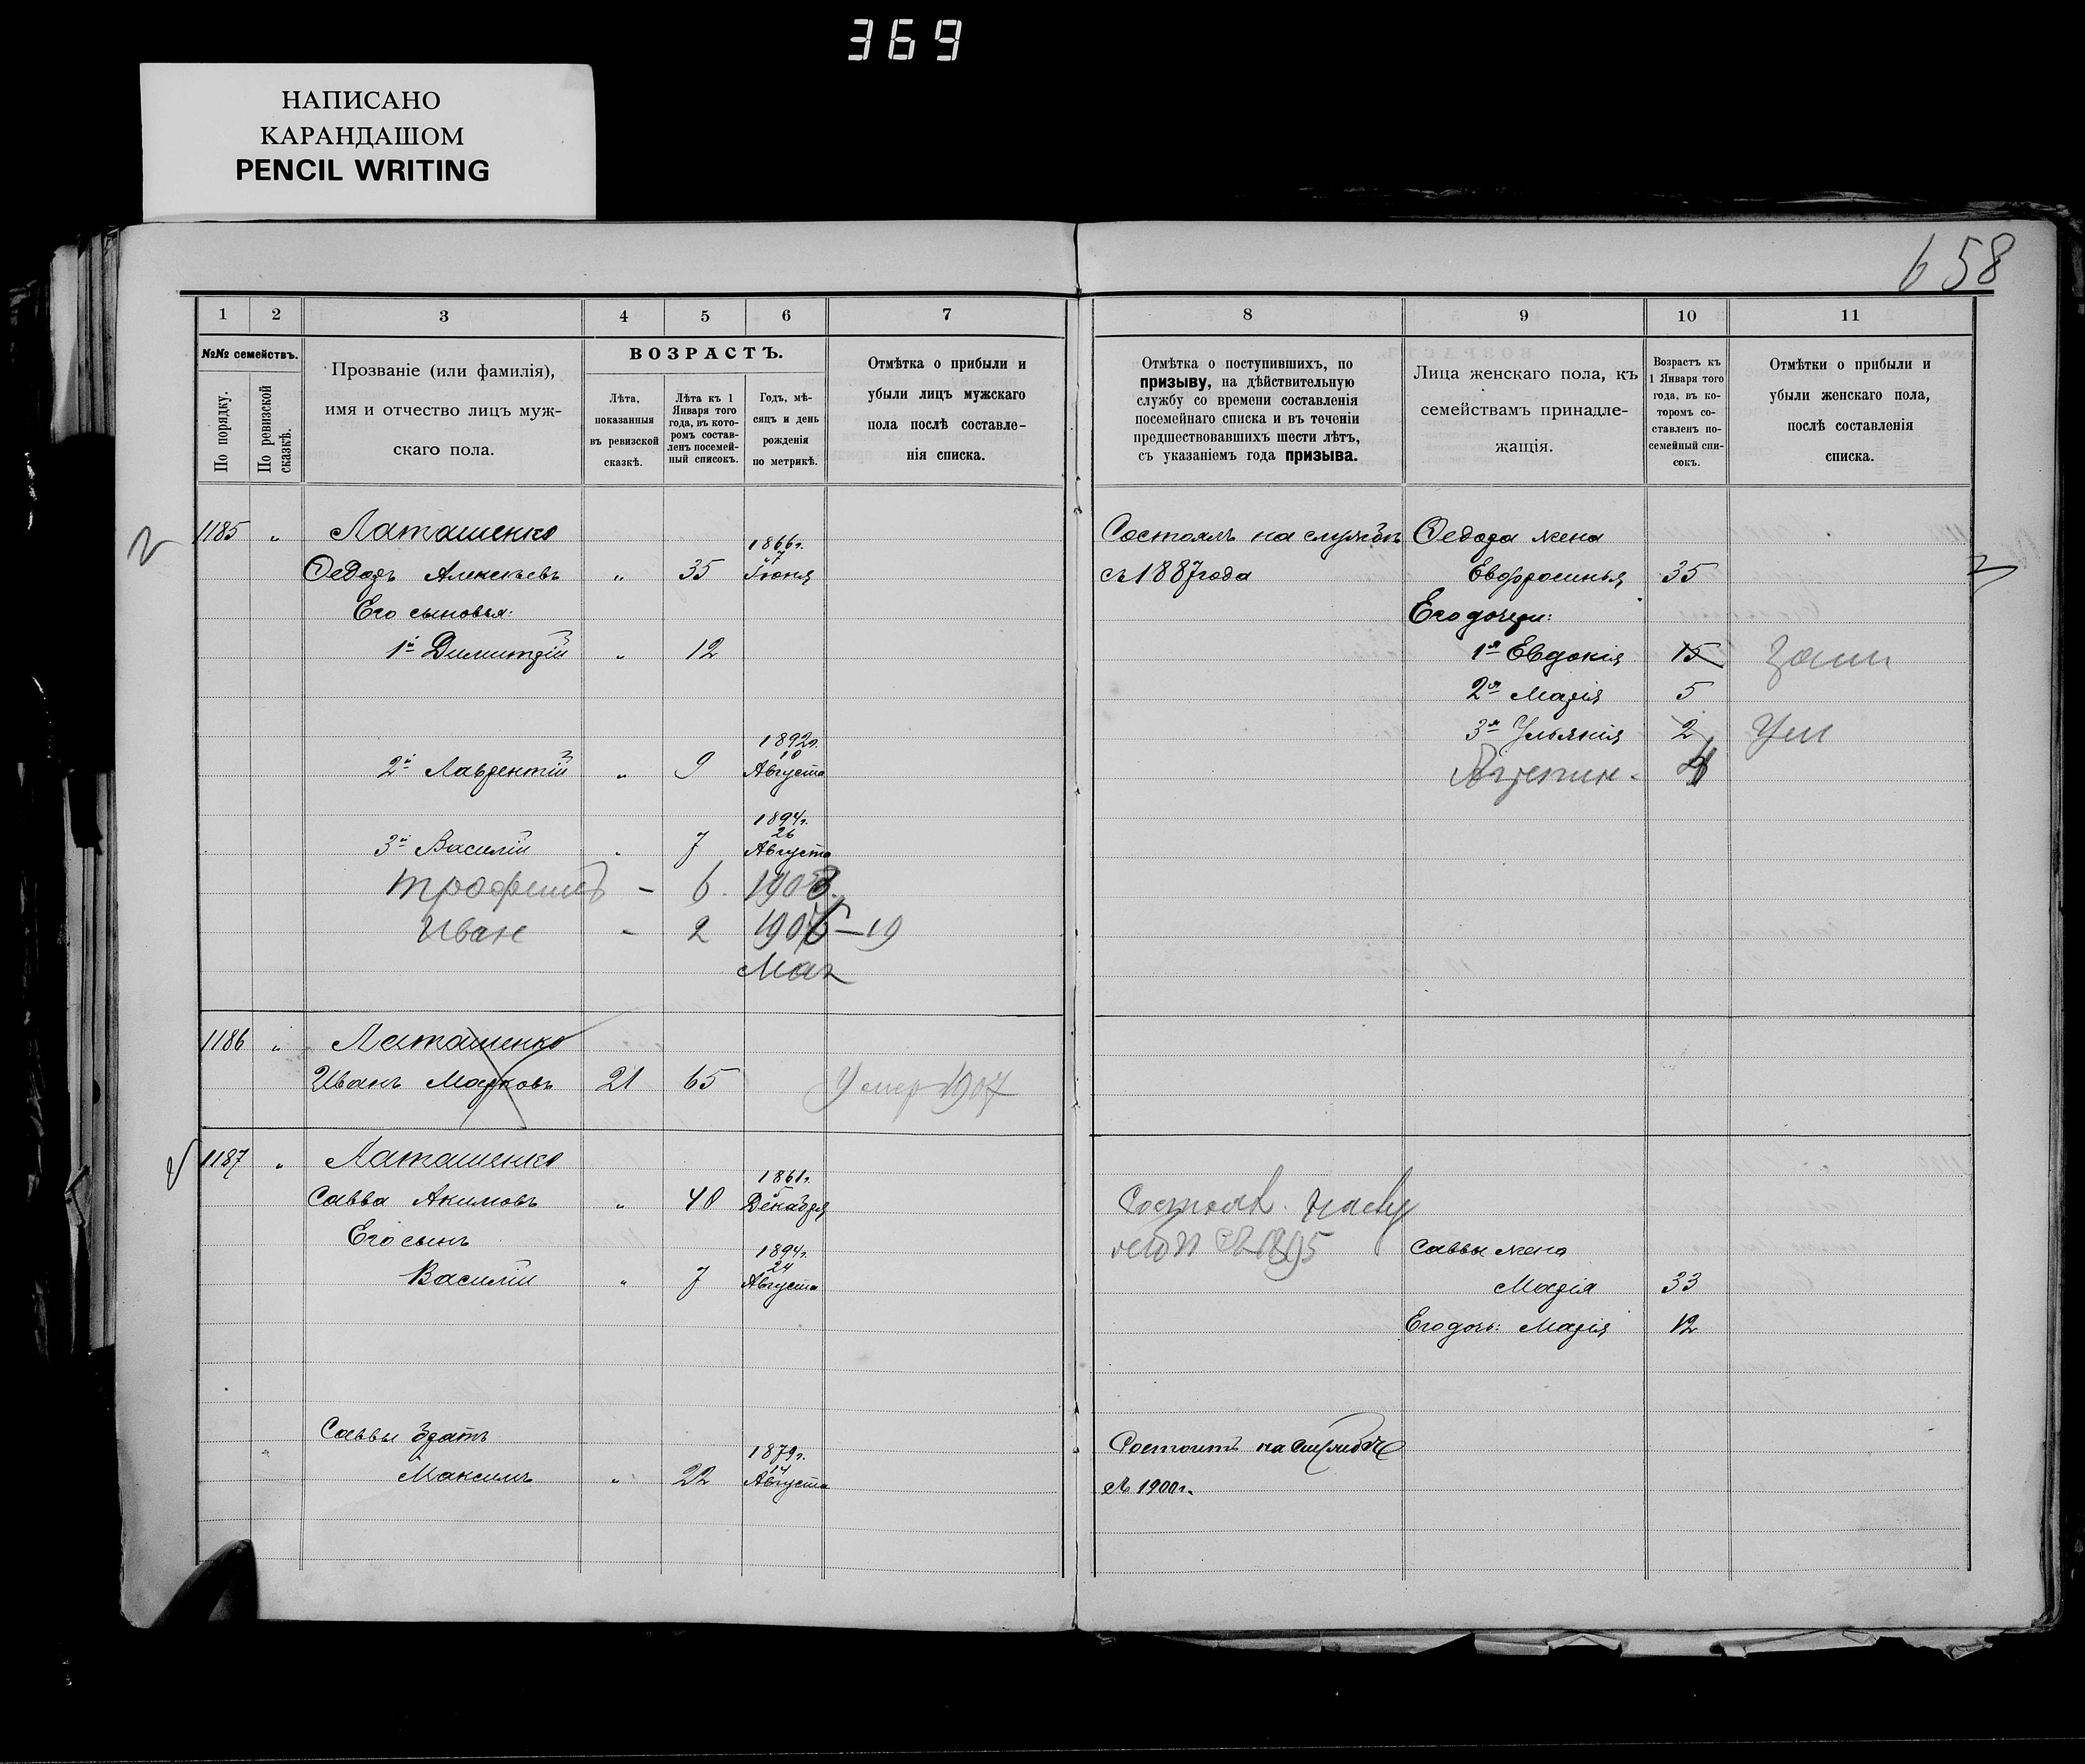 369
НАПИСАНО
КАРАНДАШОМ
PENCIL WRITING
658
1 2 3 4 5 6 7
№№ семействъ.
По порядку.
По ревизской сказкѣ.
Прозваніе (или фамилія),
имя и отчество лицъ муж-
скаго пола.
ВОЗРАСТЪ.
Лѣта,
показанныя
въ ревизской
сказкѣ.
Лѣта къ 1
Января того
года, въ кото-
ромъ состав-
ленъ посемей-
ный списокъ.
Годъ, мѣ-
сяцъ и день
рожденія
по метрикѣ.
Отмѣтка о прибыли и
убыли лицъ мужскаго
пола послѣ составле-
нія списка.
1185 " Латашенко
1866г.
7
Ѳедоръ Алексѣевъ " 35 Іюня
Его сыновья:
1й Димитрій " 12
1892г.
10
2й Лаврентій " 9 Августа
1894г.
26
3й Василій " 7 Августа
Трофимъ - 6. 1903.
Иван - 2 190 - 19
Мая
1186 " Латашенко
Иванъ Марковъ 21 65 Умер 1907
1187 " Латашенко
1861г.
5
Савва Акимовъ " 40 Декабря
Его сынъ
1894г.
24
Василій " 7 Августа
Саввы братъ
1879г.
14
Максимъ " 22 Августа
8 9 10 11
Отмѣтка о поступившихъ, по
призыву, на дѣйствительную
службу со времени составленія
посемейнаго списка и въ теченіи
предшествовавшихъ шести лѣтъ,
съ указаніемъ года призыва.
Лица женскаго пола, къ
семействамъ принадле-
жащія.
Возрастъ къ
1 Января того
года, въ ко-
торомъ со-
ставленъ по-
семейный спи-
сокъ.
Отмѣтки о прибыли и
убыли женскаго пола,
послѣ составленія
списка.
Состоялъ на службѣ Ѳедора жена
съ 1887 года Евфросинья 35
Его дочери:
1я Евдокія 15 Зам
2я Марія 5
3я Ульянія 2 Ум
Агрепин. 4
Состоял на слу
1895
Саввы жена
Марія 33
Его дочь: Марія 12
Состоитъ на службѣ
съ 1900г.